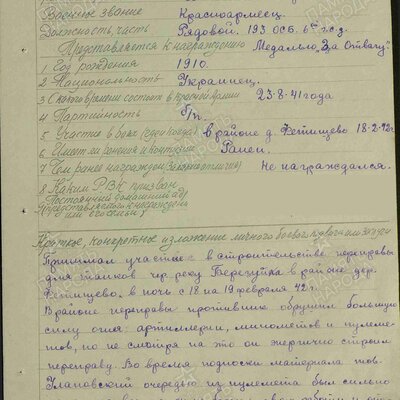 Военное звание Красноармеец.
Должность, часть Рядовой. 193 ОСБ. 6ой ж.д.
Представляется к награждению Медалью "За Отвагу"
1 Год рождения 1910.
2 Национальность Украинец.
3 С какого времени состоит в Красной Армии 23-8-41 года
4 Партийность б/п.
5 Участие в боях (где и когда) в районе д. Фетищево 18-2-42г
6 Имеет ли ранения и контузии Ранен.
7 Чем ранее награжден (за какие отличия) Не награждался.
8 Каким РВК призван
Постоянный домашний ад
представляемого к награждени
и его семьи
Краткое, конкретное изложение личного боевого подвига или заслуги
Принимал участие в строительстве переправы
для танков чр. реку Березуйка в районе дер.
Фетищево. в ночь с 18 на 19 февраля 42г.
В районе переправы противник обрушил большую
силу огня: артиллерии, минометов и пулеме-
тов, но не смотря на это он энергично строил
переправу. Во время подноски материала тов.
Улановский очередью из пулемета был сильно